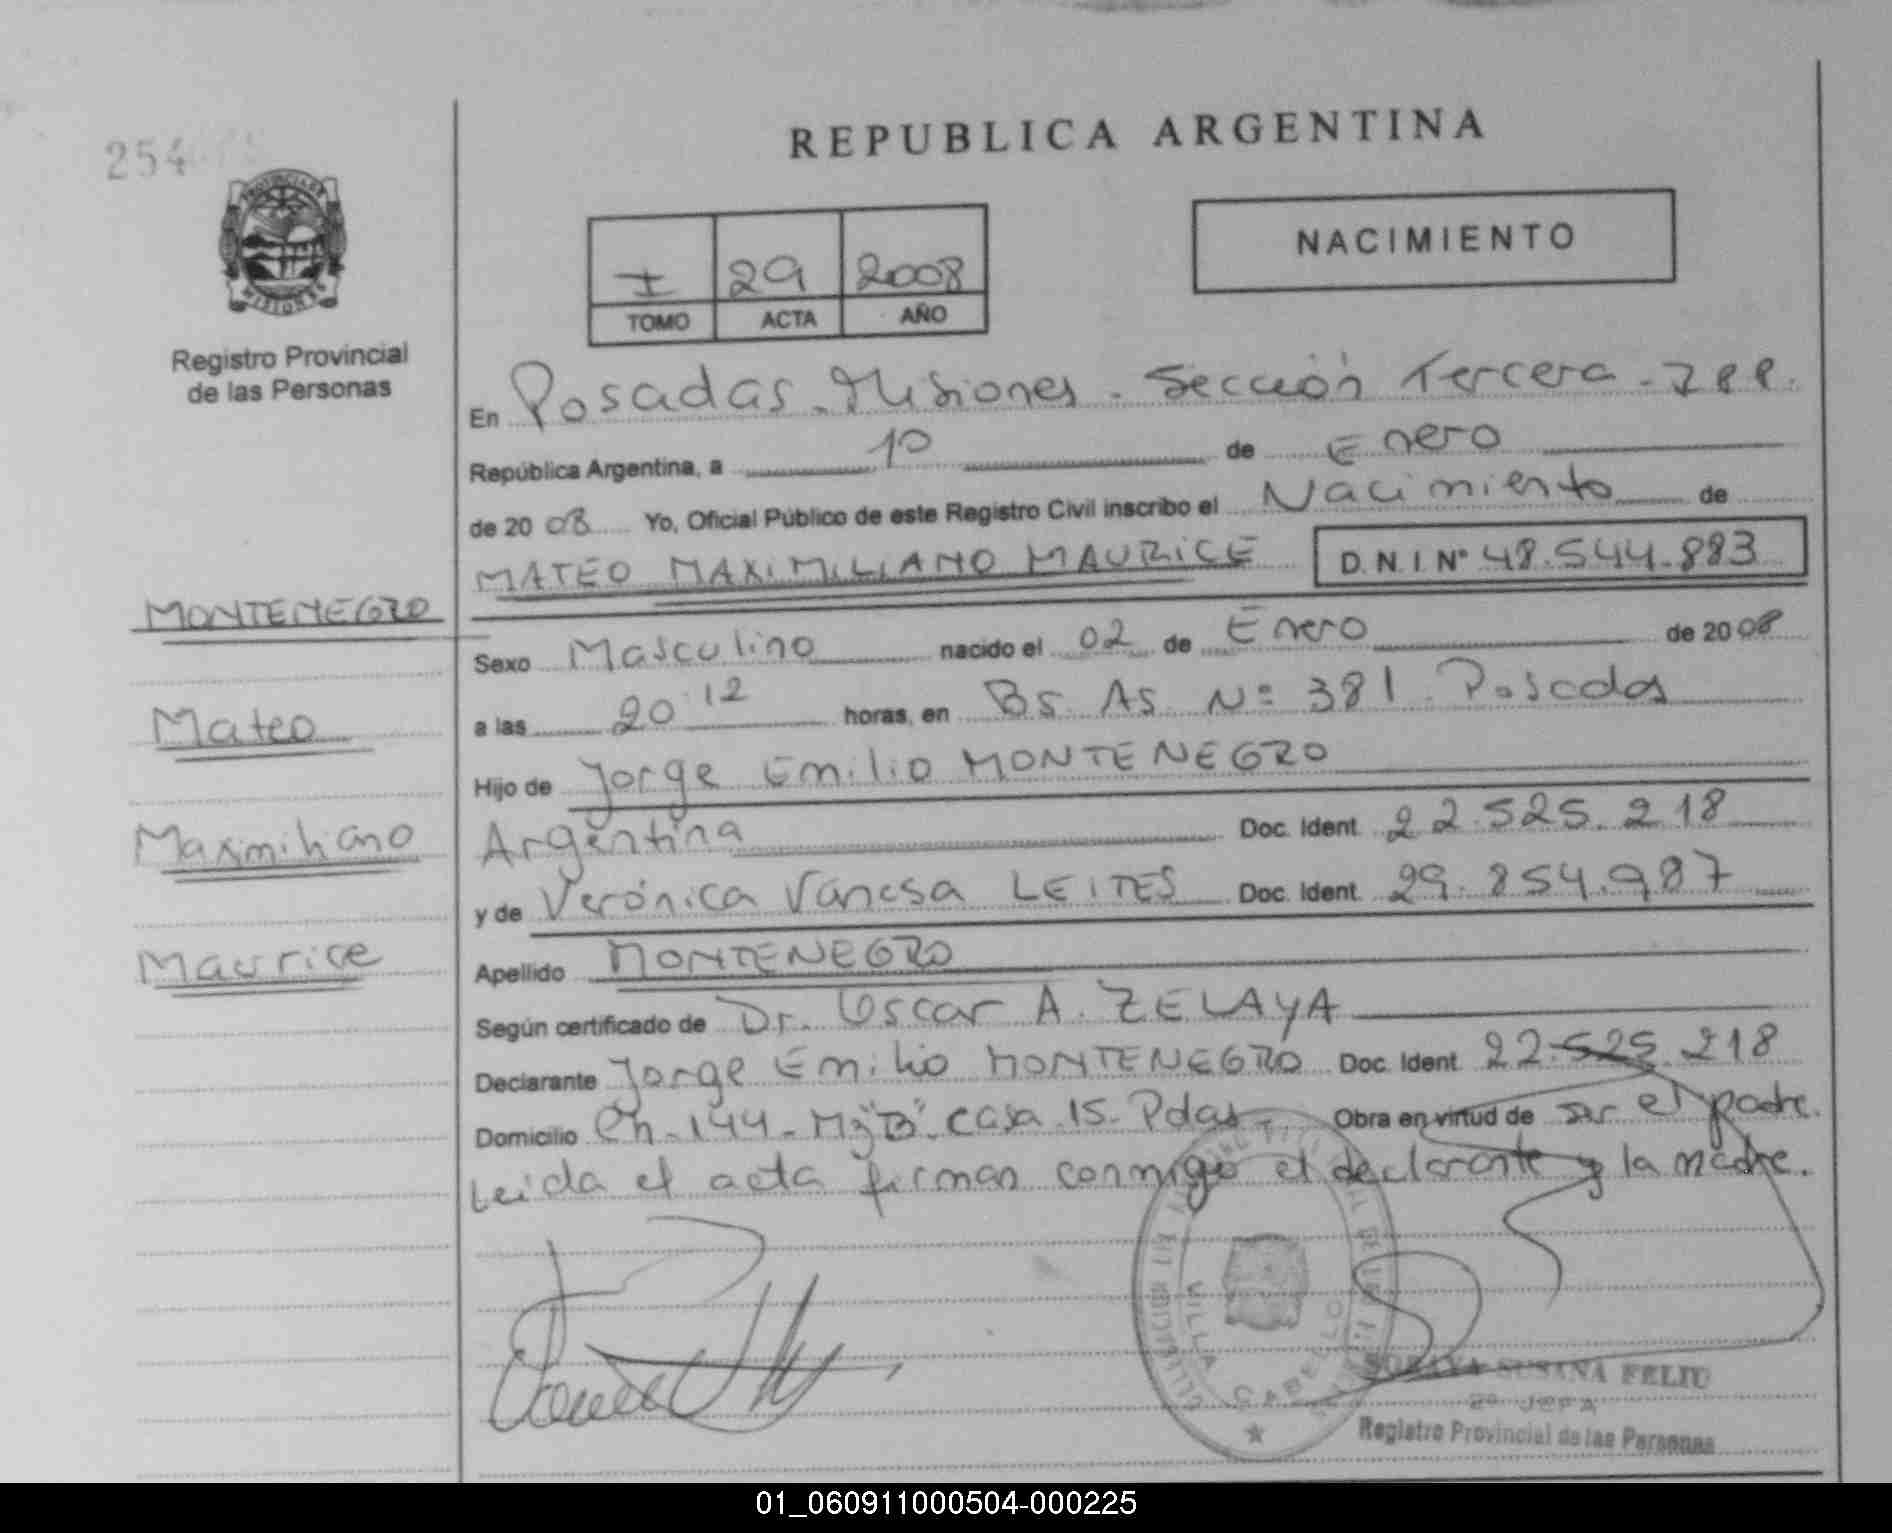 254
REPUBLICA ARGENTINA
PROVINCIA DE
MISIONES
Registro Provincial
de las Personas
I 29 2008
TOMO ACTA AÑO
NACIMIENTO
En Posadas - Misiones - Sección Tercera -
República Argentina, a 10 de Enero
de 2008 Yo, Oficial Público de este Registro Civil inscribo el Nacimiento de
MATEO MAXIMILIANO MAURICE D.N.I Nº 48.544.883
MONTENEGRO
Sexo Masculino nacido el 02 de Enero de 2008
Mateo
a las 20 12 horas, en Bs. As. Nº 381 Posadas
Hijo de Jorge Emilio MONTENEGRO
Maximiliano
Argentina Doc. Ident. 22.525.218
y de Verónica Vanesa LEITES Doc. Ident. 29.854.987
Maurice
Apellido MONTENEGRO
Según certificado de Dr. Oscar A. ZELAYA
Declarante Jorge Emilio MONTENEGRO Doc. Ident. 22.525.218
Domicilio Ch. 144 - Mz "B" casa 15. Pdas - Obra en virtud de ser el padre.
Leida el acta firman conmigo el declarante y la madre.
VILLA CABELLO
SORAYA SUSANA FELIU
2º JEFA
Registro Provincial de las Personas
01_060911000504-000225